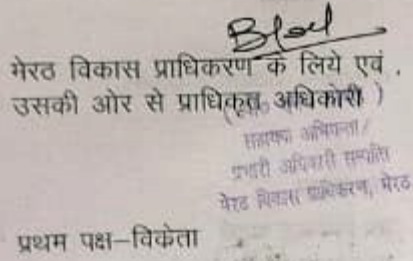 मेरठ विकास प्राधिकरण के लिये एवं .
उसकी ओर से प्राधिकृत अधिकारी )
सहायक अभियन्ता/
प्रभारी अधिकारी सम्पत्ति
मेरठ विकास प्राधिकरण, मेरठ
प्रथम पक्ष–विकेता